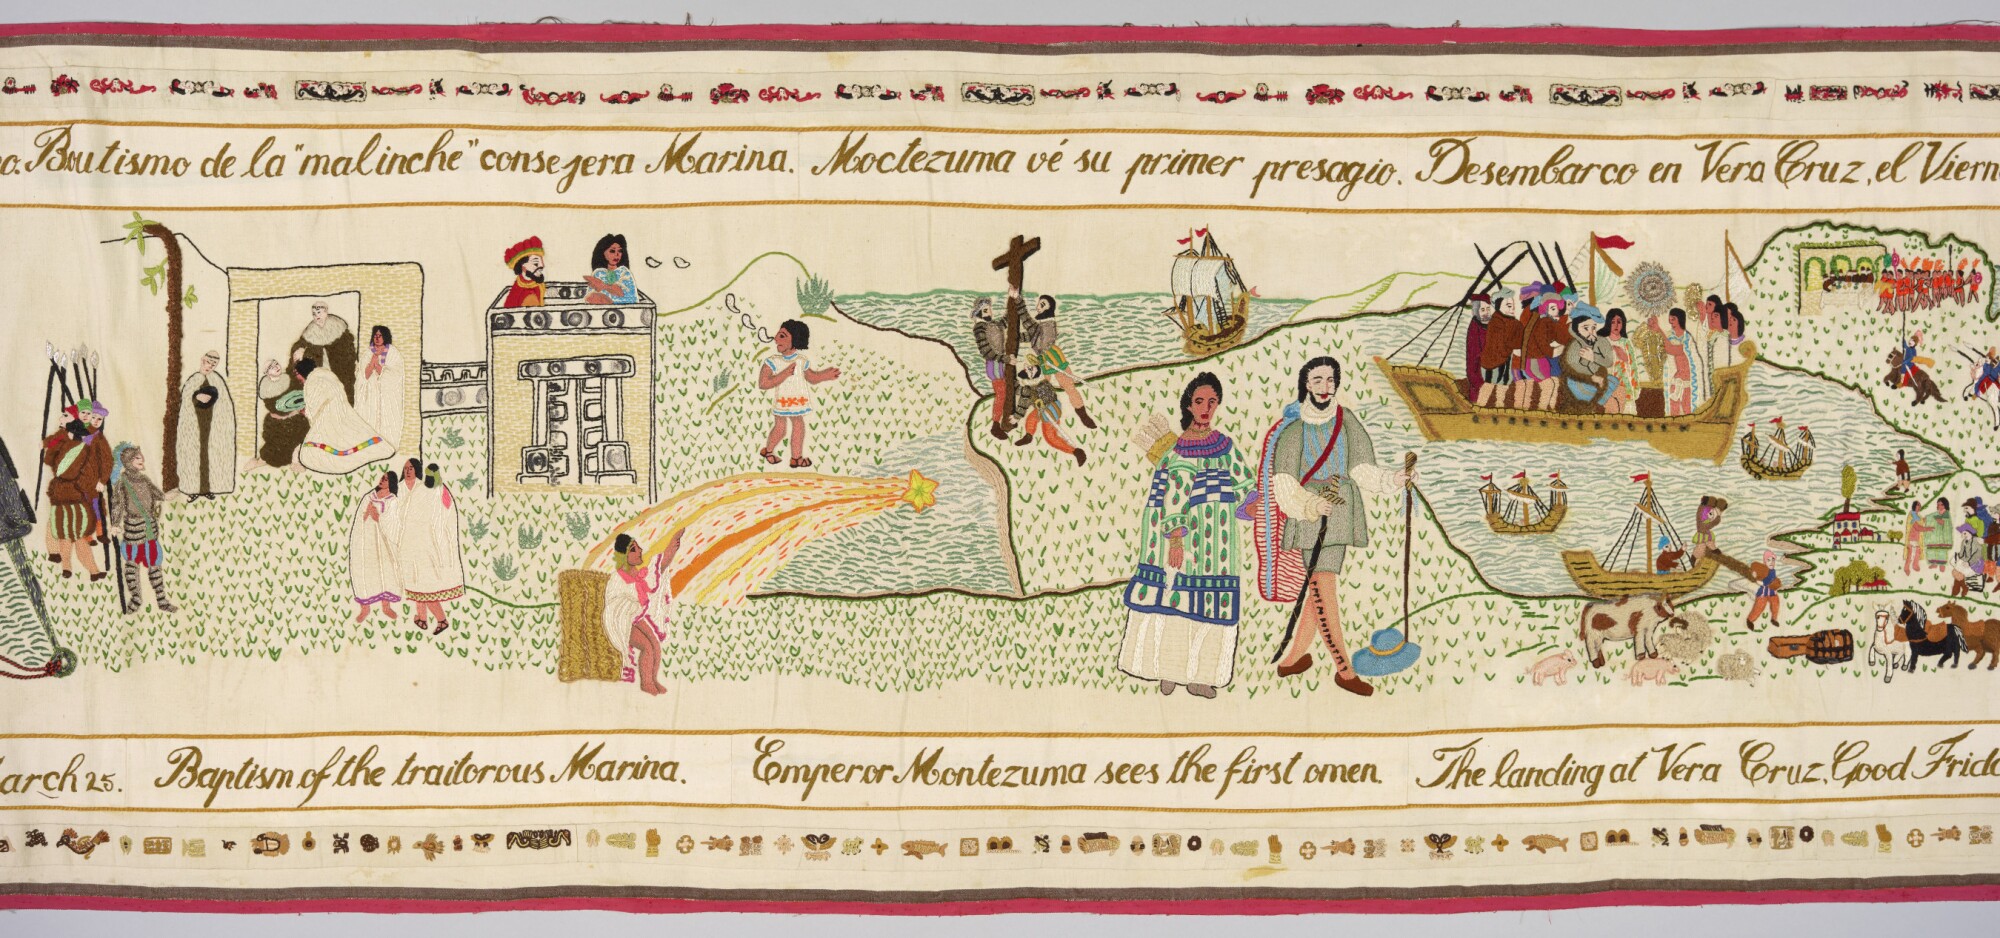 o. Boutismo de la "malinche" consejera Marina. Moctezuma vé su primer presagio. Desembarco en Vera Cruz, el Viern
arch 25. Baptism of the traitorous Marina. Emperor Montezuma sees the first omen. The landing at Vera Cruz, Good Frida